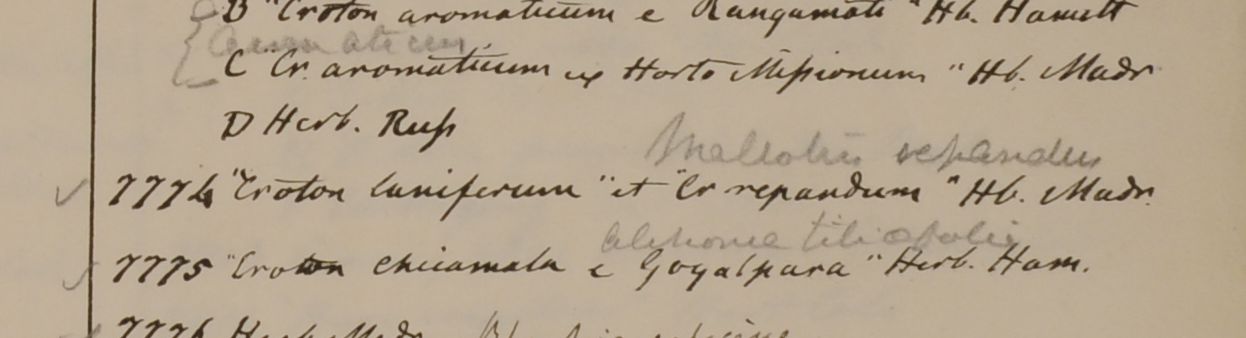 B "Croton aromaticum e Rangamati" Hb. Hamilt
aromaticus
C "Cr. aromaticum ex Horto Missionum" Hb. Madr
D Herb. Russ
Mallotus repandus
7774 "Croton laniferum" et "Cr repandum" Hb. Madr.
tiliaefolia
7775 "Croton chicamala e Goyalpara" Herb. Ham.
7776 Herb. Madr.